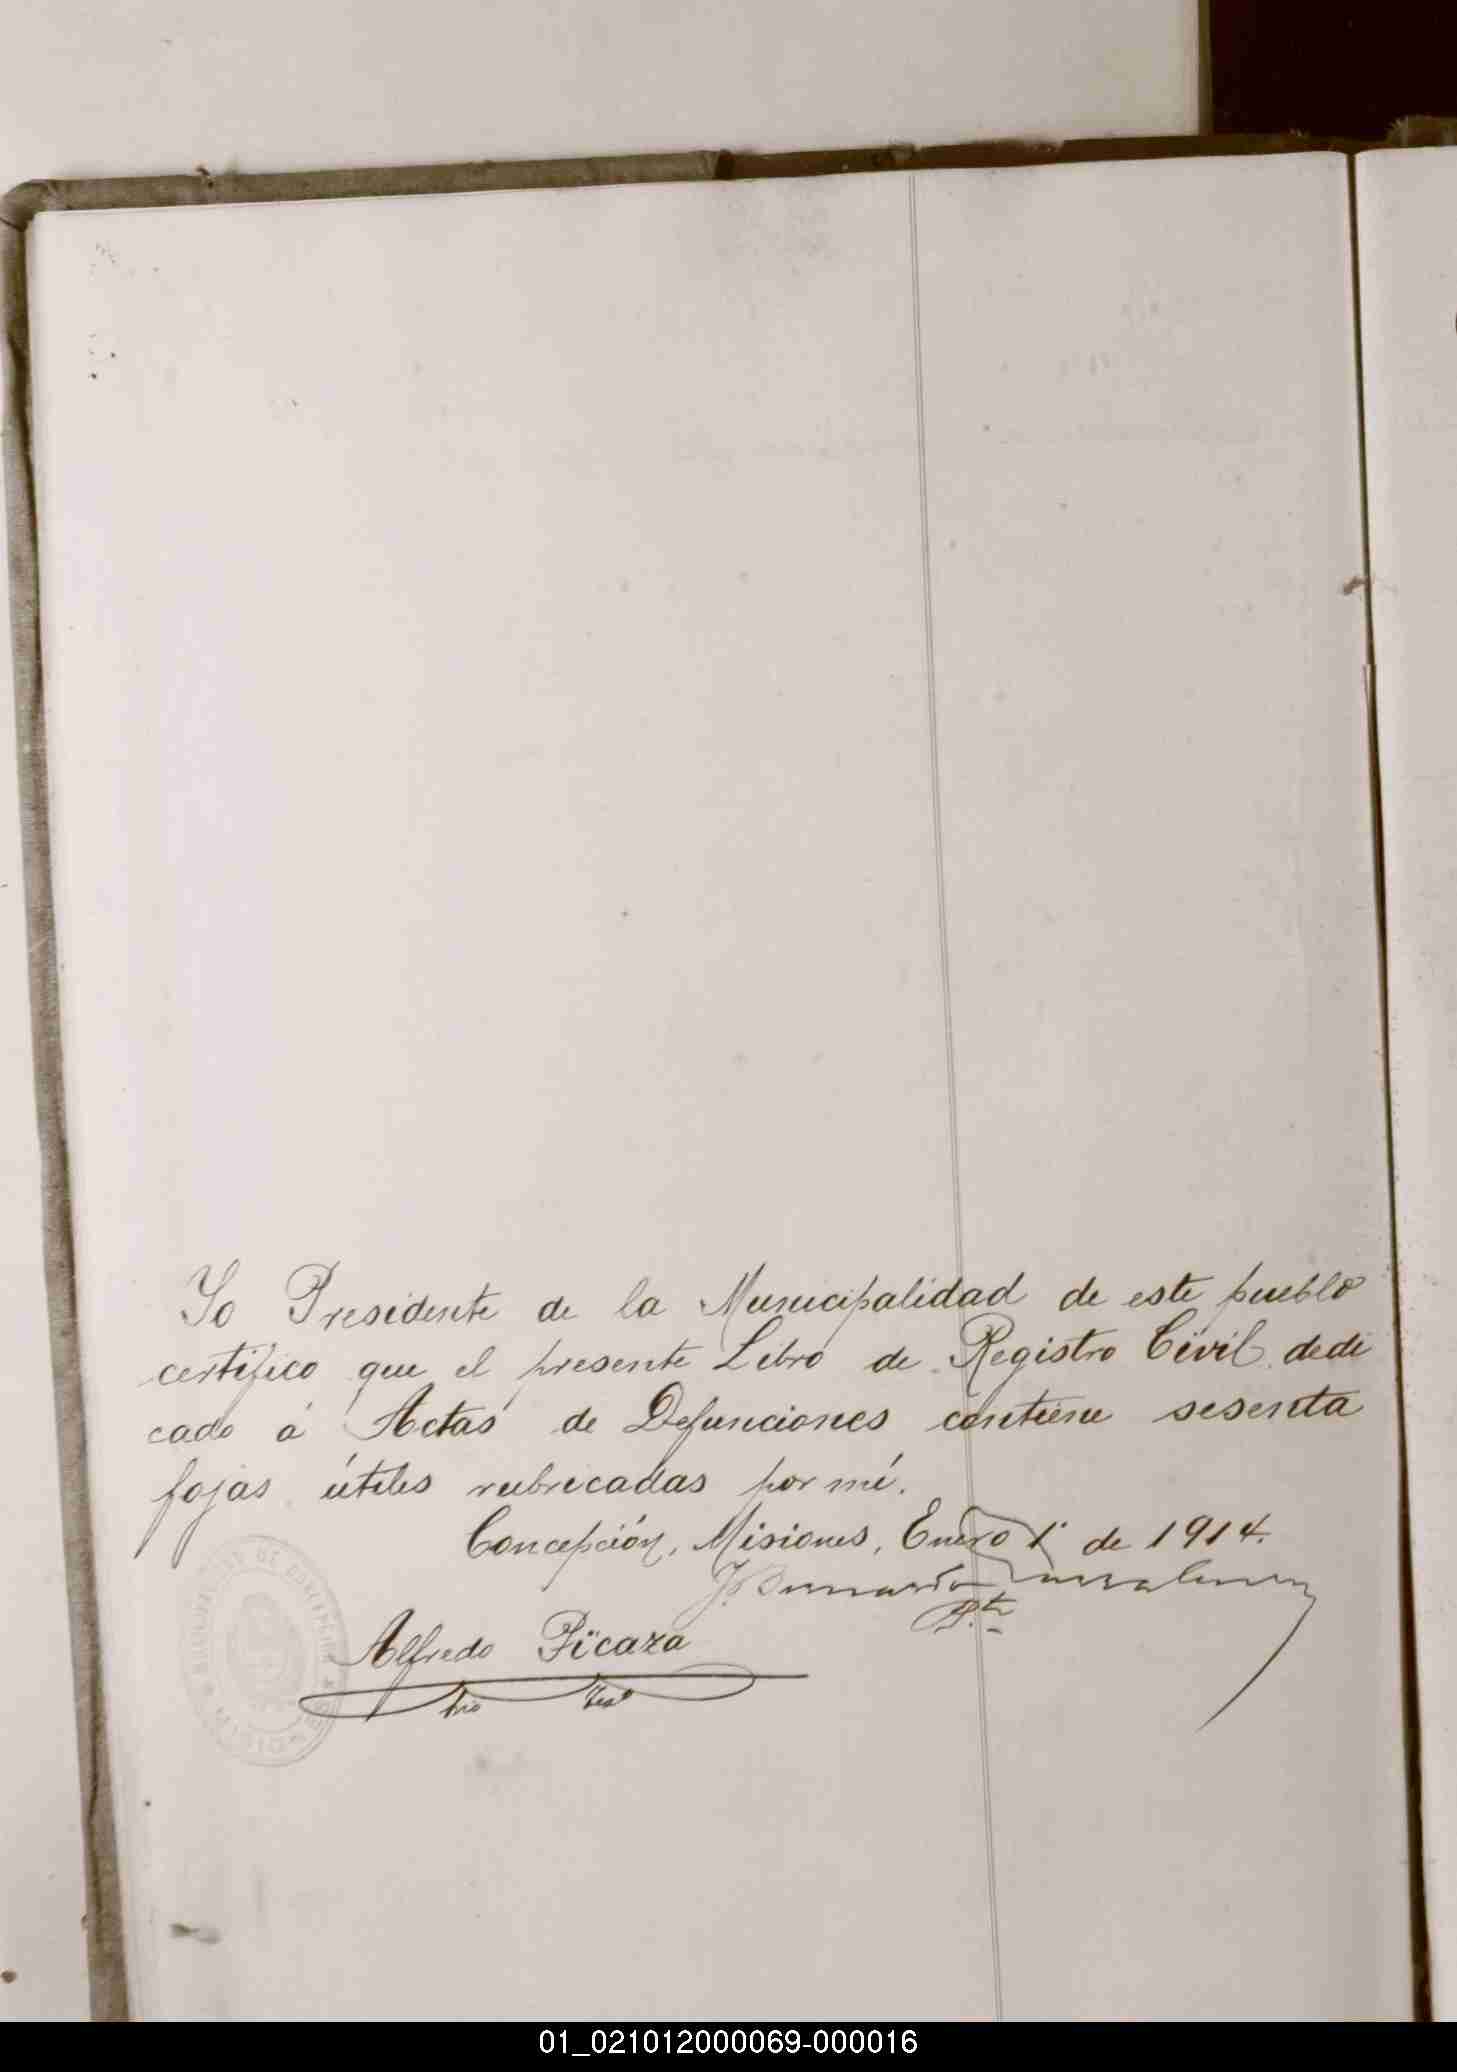 Yo Presidente de la Municipalidad de este pueblo
certifico que el presente Libro de Registro Civil dedi
cado á Actas de Defunciones contiene sesenta
fojas útiles rubricadas por mí.
Concepción, Misiones, Enero 1º de 1914.
J. Bernardo
P.te
Alfredo Picaza
Srio Tesº
01_021012000069-000016